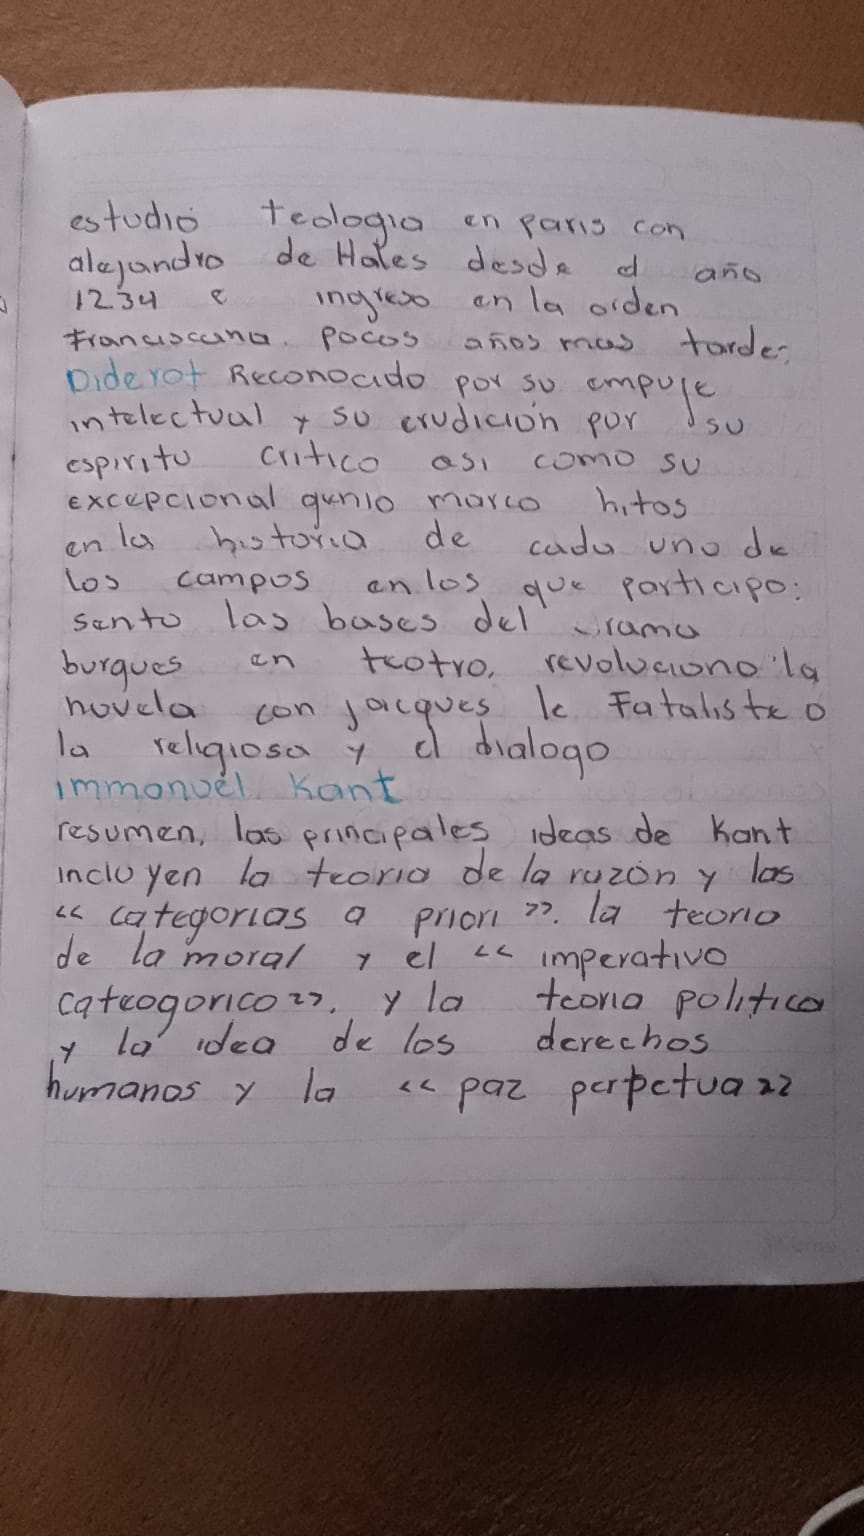 estudio teologia en paris con
alejandro de Hales desde el año
1234 e ingreso en la orden
Franciscana. pocos años mas tarde.
Diderot Reconocido por su empuje
intelectual y su erudición por su
espiritu critico asi como su
excepcional genio marco hitos
en la historia de cada uno de
los campos en los que participo:
sento las bases del drama
burgues en teatro, revoluciono la
novela con jacques le Fataliste o
la religiosa y el dialogo
immanuel Kant
resumen, las principales ideas de Kant
incluyen la teoria de la razón y las
<< categorias a priori >>. la teoria
de la moral y el << imperativo
cateogorico >>, y la teoria politica
y la idea de los derechos
humanos y la << paz perpetua >>